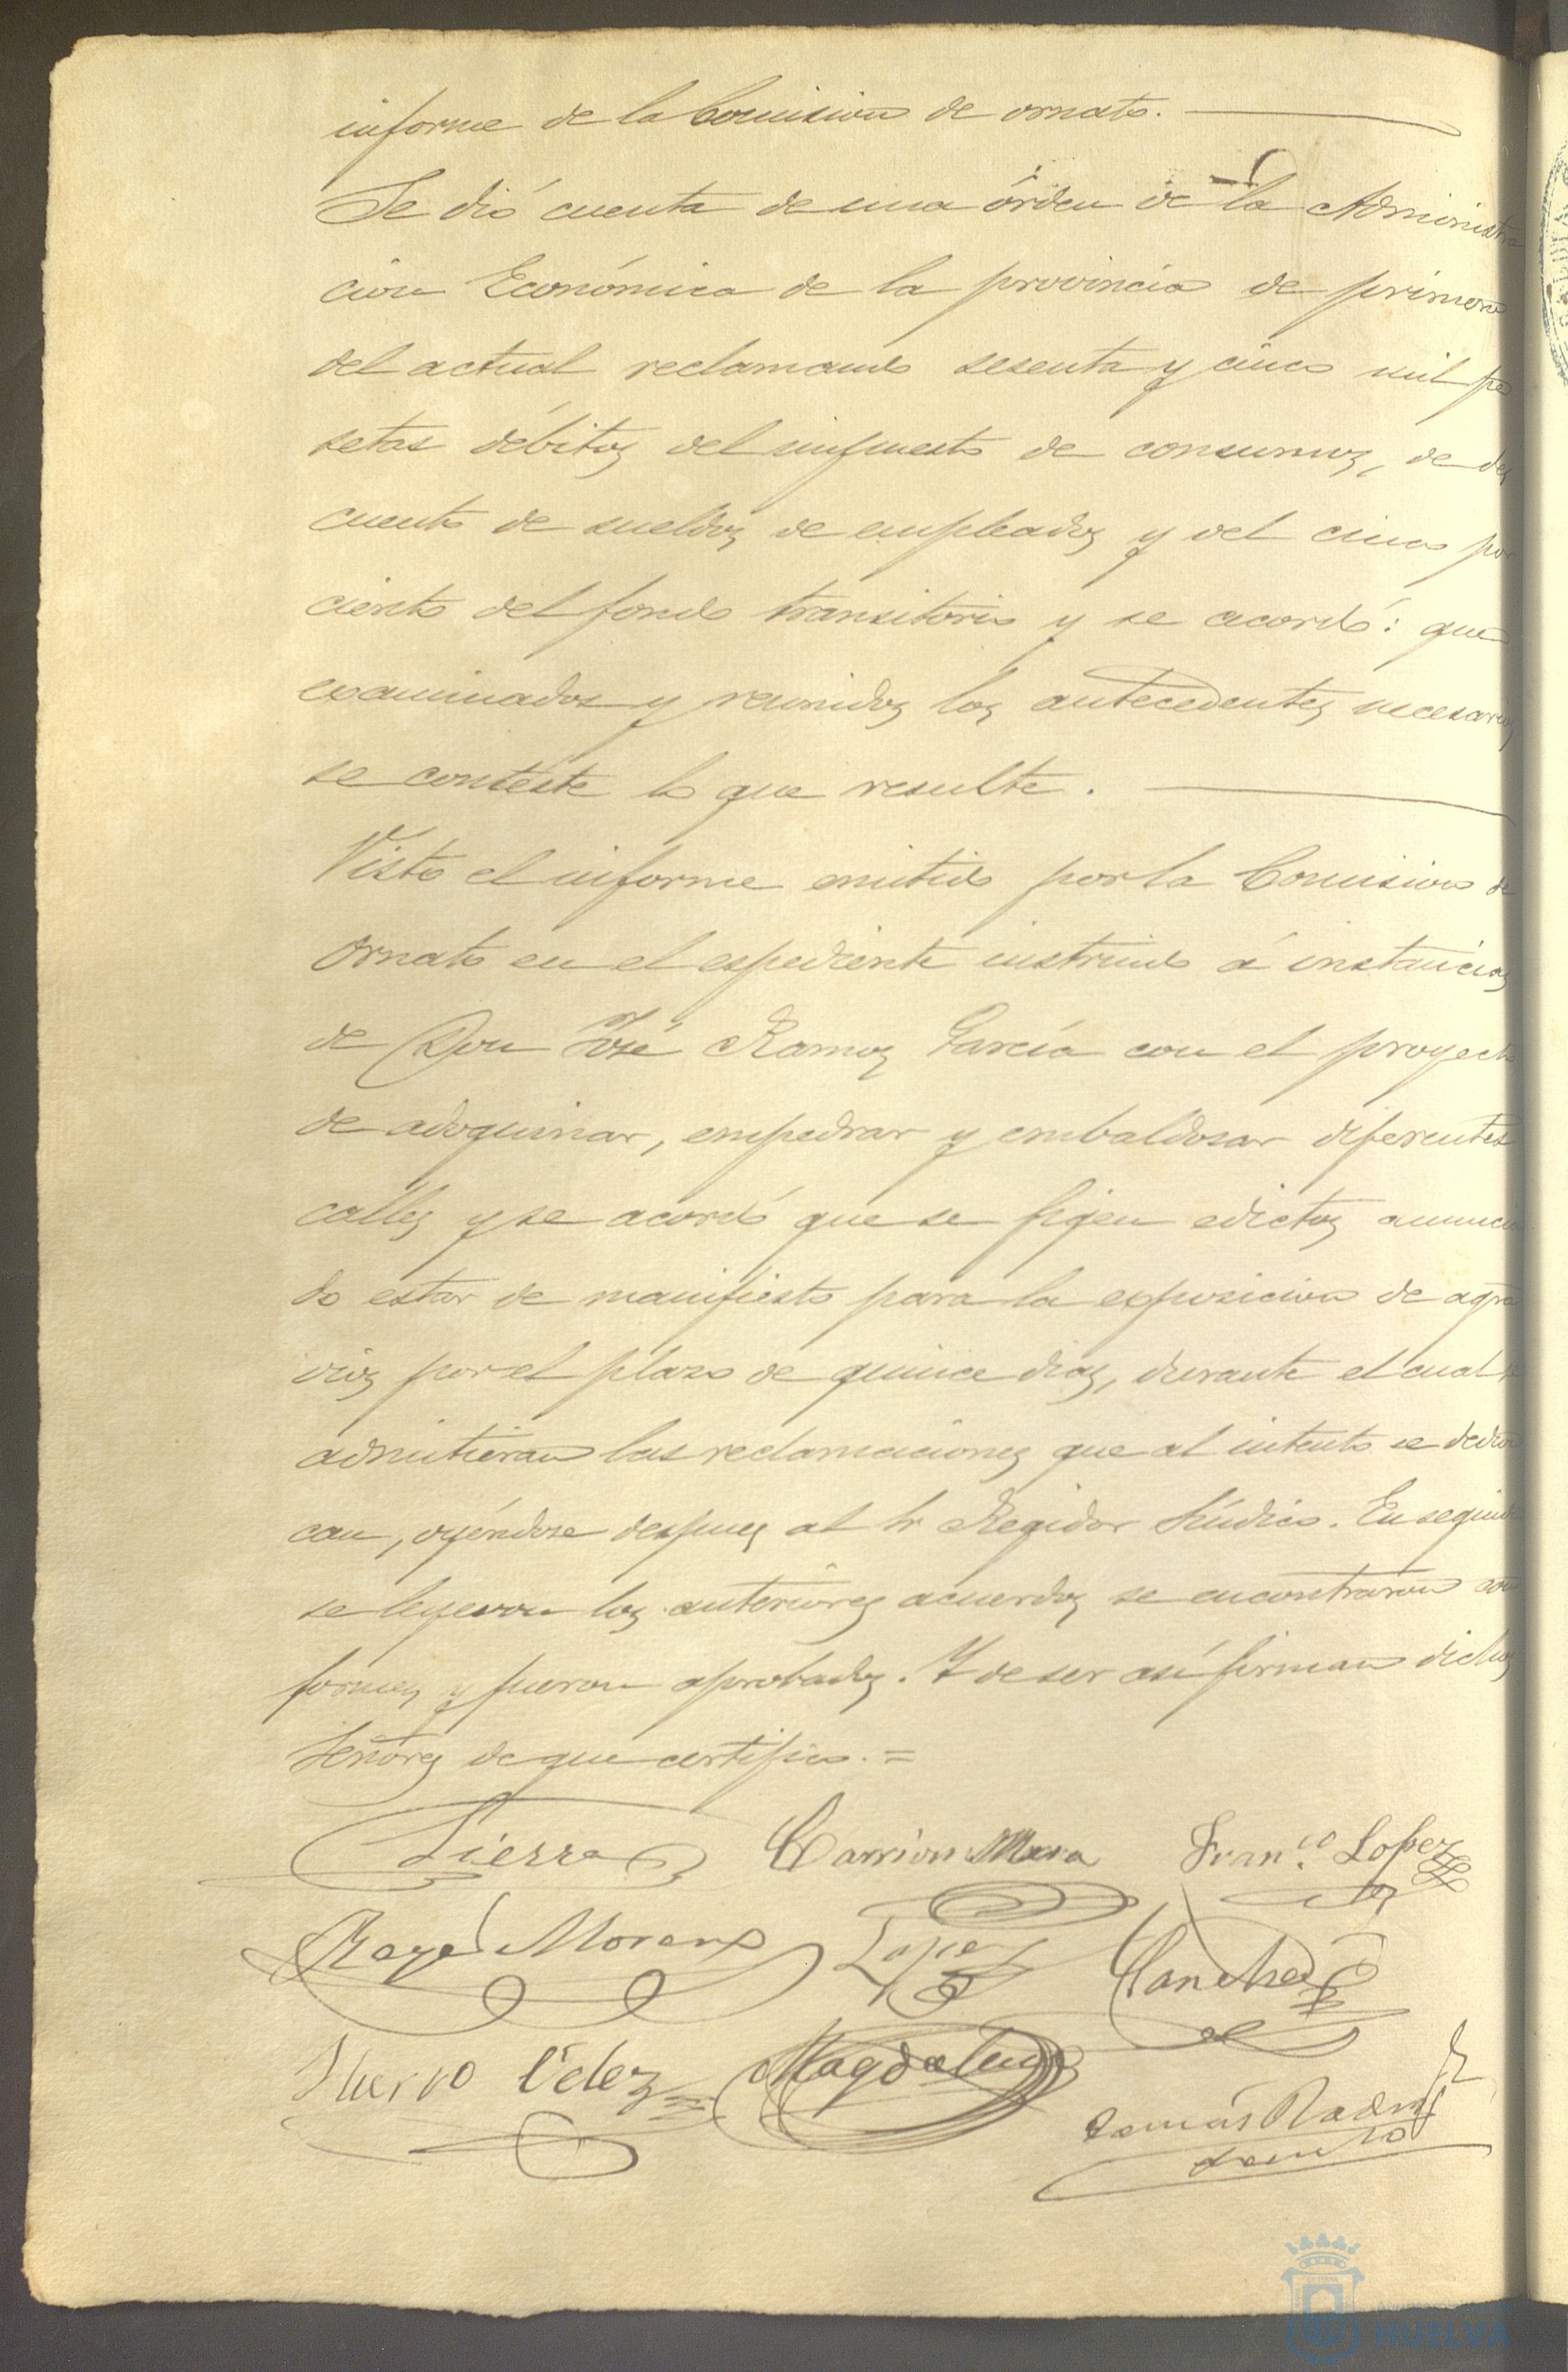 informe de la Comision de ornato.
Se dió cuenta de una órden de la Administra
cion Económica de la provincia de primero
del actual reclamando sesenta y cinco mil pe
setas débitos del impuesto de consumos, de des
cuento de sueldos de empleados y del cinco por
ciento del fondo transitorio y se acordó: que
examinados y reunidos los antecedentes necesarios
se conteste lo que resulte.
Visto el informe emitido por la Comision de
Ornato en el espediente instruido á instancias
de Don José Ramos García con el proyecto
de adoquinar, empedrar y embaldosar diferentes
calles y se acordó que se fijen edictos anuncian
do estar de manifiesto para la exposicion de agra
vios por el plazo de quince dias, durante el cual se
admitieran las reclamaciones que al intento se deduz
can, oyéndose despues al Sr Regidor Síndico. En seguida
se leyeron los anteriores acuerdos se encontraron con
formes y fueron aprobados. Y de ser así firman dichos
Señores de que certifico. =
Sierra Carrion Mora Fran.co Lopez
Moreno Lopez Sanchez
Velez Magdalena
Tomás
HUELVA